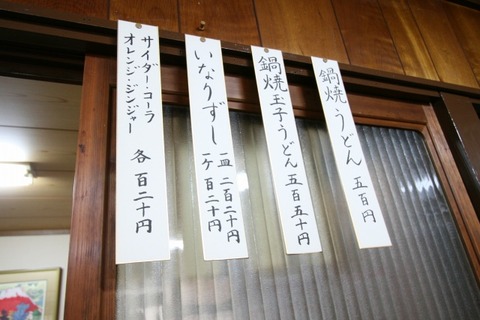 鍋焼うどん 五百円
鍋焼玉子うどん 五百五十円
いなりずし
一皿 二百二十円
一ケ 百二十円
サイダー・コーラ
オレンジ・ジンジャー
各 百二十円